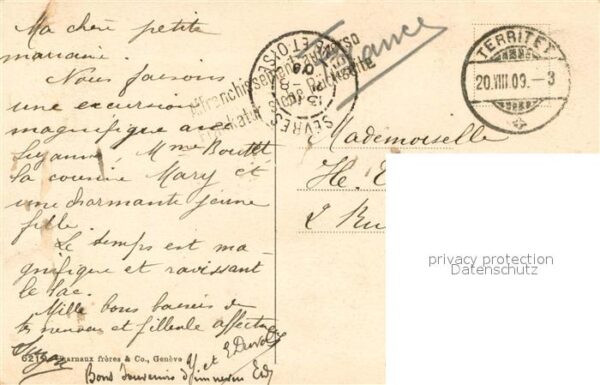 Ma chère petite
marraine.
Nous faisons
une excursion
magnifique avec
Suzanne, Mme Boutet
la cousine Mary et
une charmante jeune
fille.
Le temps est ma-
gnifique et ravissant
le lac.
Mille bons baisers de
neveu et filleule affect
et
Bons souvenirs d'un neveu Ed
6219 Charnaux frères & Co., Genève
France
Affranchissement
SÈVRES
ET OISE
TERRITET
20.VIII.09.–3
Mademoiselle
H. E
2 Ru
privacy protection
Datenschutz